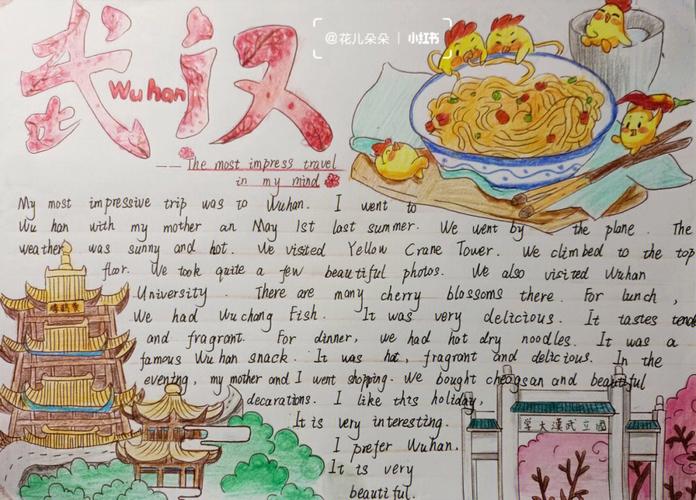 武汉
Wu han
@花儿朵朵 | 小红书
--- The most impress travel
in my mind
My most impressive trip was to Wuhan. I went to
Wu han with my mother an May 1st last summer. We went by the plane. The
weather was sunny and hot. We visited Yellow Crane Tower. We climbed to the top
floor. We took quite a few beautiful photos. We also visited Wuhan
University. There are many cherry blossoms there. For lunch,
We had Wuchang Fish. It was very delicious. It tastes tende
and fragrant. For dinner, we had hot dry noodles. It was a
famous Wu han snack. It was hot, fragrant and delicious. In the
evening, my mother and I went shopping. We bought cheogsan and beautiful
decarations. I like this holiday,
It is very interesting.
I prefer Wuhan.
It is very
beautiful.
國立武漢大學